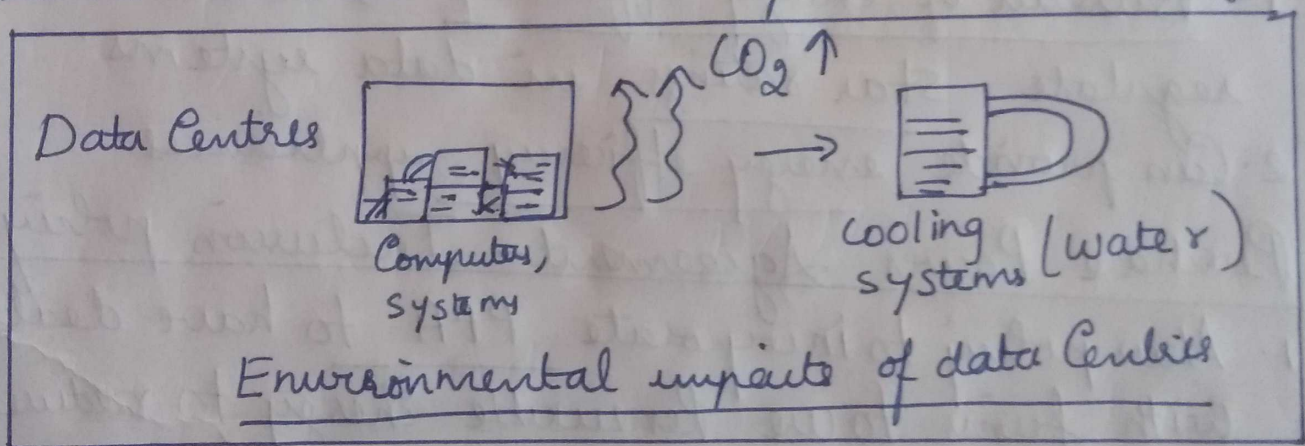 CO₂ ↑
Data Centres
Computers,
systems
cooling
systems (water)
Environmental impacts of data Centres